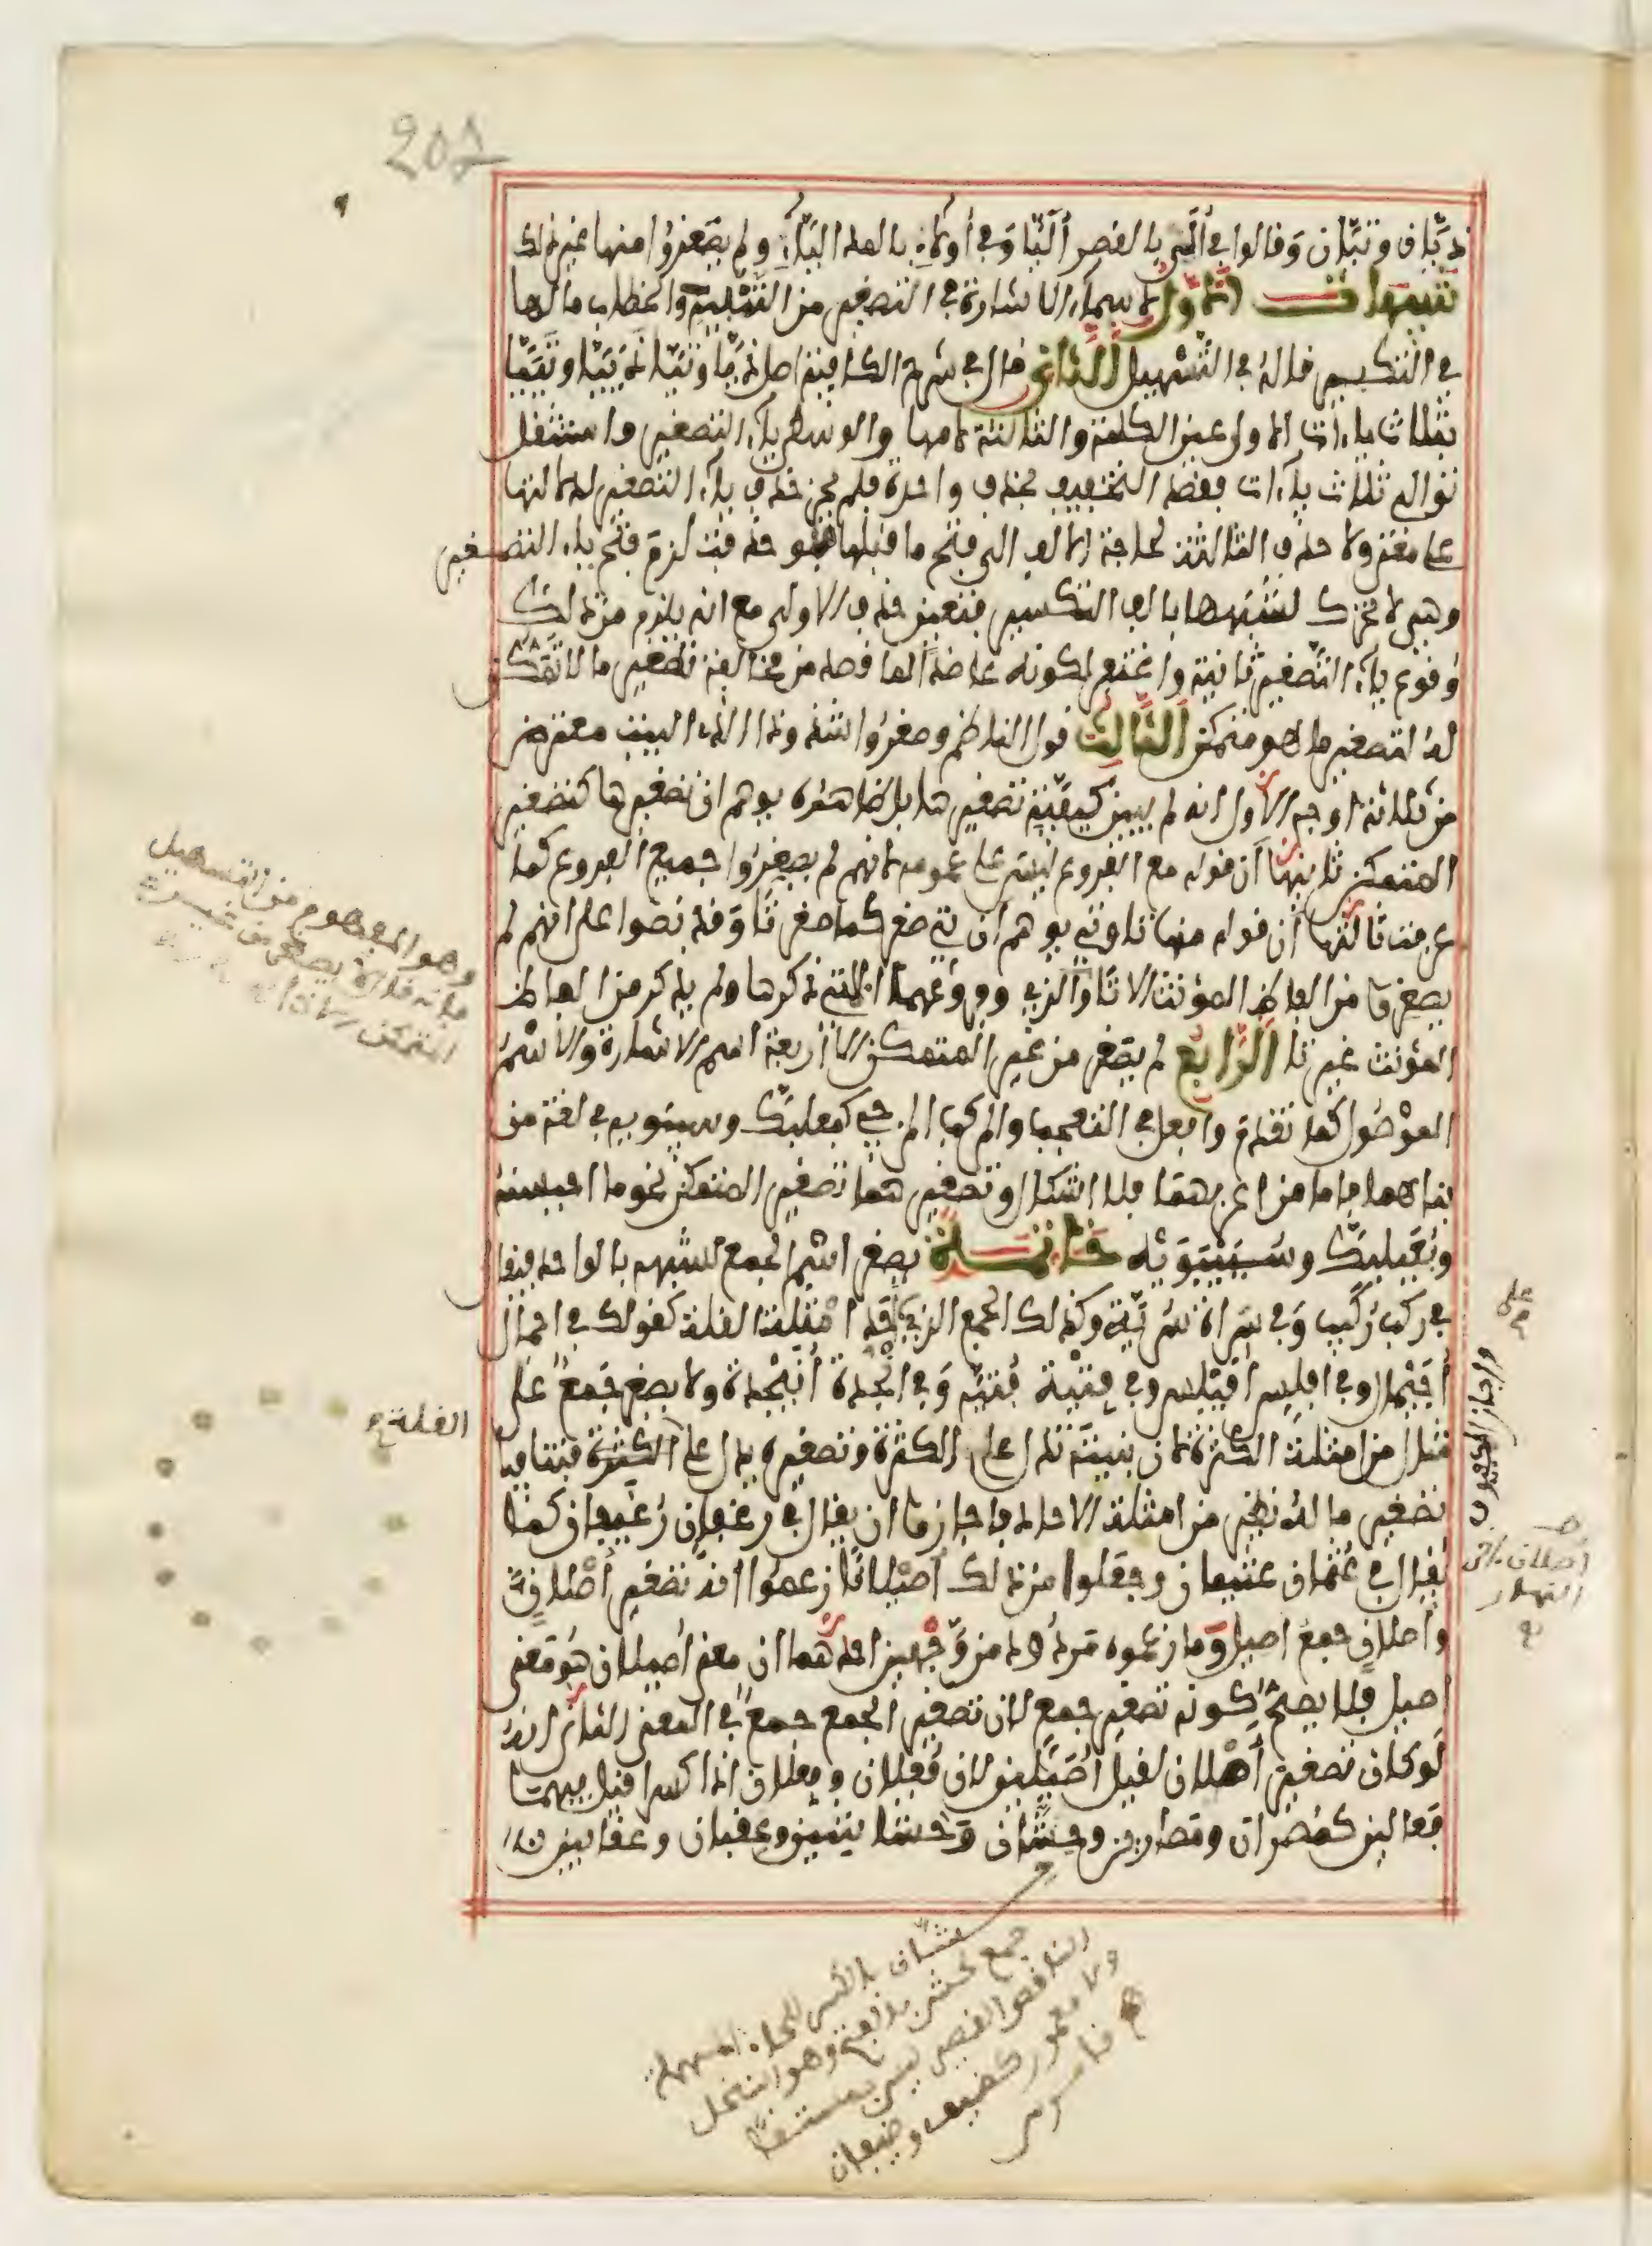 201
ذيان وتيان وقالوا في ألى بالقصر أليا وفي أولاء بالمد ألياء ولم يصغروا منها غير ذلك
تنبيهات الأول لأسماء الإشارة في التصغير من التنبيه والخطاب ما لها
في التكبير قاله في التسهيل الثاني قال في شرح الكافية أصل ذيا وتيا ذييا وتييا
بثلاث ياءات الأولى عين الكلمة والثالثة لامها والوسطى ياء التصغير فاستثقل
توالي ثلاث ياءات فقصد التخفيف بحذف واحدة فلم يجز حذف ياء التصغير لدلالتها
على معنى ولا حذف الثالثة لحاجة الألف إلى فتح ما قبلها فلو حذفت لزم فتح ياء التصغير
وهي لا تحرك لشبهها بألف التكسير فتعين حذف الأولى مع أنه يلزم من ذلك
وقوع ياء التصغير ثانية واغتفر لكونه عاضدا لما قصد من مخالفة تصغير ما لا تمكن
له لتصغير ما هو متمكن الثالث قول الناظم وصغروا شذوذا الذي البيت معترض
من ثلاثة أوجه الأول أنه لم يبين كيفية تصغيرها بل ظاهره يوهم أن تصغيرها كتصغير
المتمكن ثانيها أن قوله مع الفروع ليس على عمومه لأنهم لم يصغروا جميع الفروع كما
عرفت ثالثها أن قوله منها تا وتي يوهم أن تي صغر كما صغر تا وقد نصوا على أنهم لم
يصغروا من ألفاظ المؤنث إلا تا والذي وفروعهما التي ذكرها ولم يذكر من ألفاظ
المؤنث غير تا الرابع لم يصغر من غير المتمكن إلا أربعة اسم الإشارة والاسم
الموصول كما تقدم وأفعل في التعجب والمركب المزجي كبعلبك وسيبويه في لغة من
بناهما فأما من أعربهما فلا إشكال وتصغيرهما تصغير المتمكن نحو ما أحيسنه
وبعيلبك وسييبويه خاتمة يصغر اسم الجمع لشبهه بالواحد فيقال
في ركب ركيب وفي سراة سرية وكذلك الجمع الذي على أحد أمثلة القلة كقولك في أجمال
أجيمال وفي أفلس أفيلس وفي فتية فتية وفي أنجدة أنيجدة ولا يصغر جمع على
مثال من أمثلة الكثرة لأن بنيته تدل على الكثرة وتصغيره يدل على القلة فتنافيا
تصغير ما له نظير من أمثلة الآحاد فأجازوا أن يقال في رغفان رغيفان كما
يقال في عثمان عثيمان وجعلوا من ذلك أصيلانا زعموا أنه تصغير أصلان
وأصلان جمع أصيل وما زعموه مردود من وجهين أحدهما أن معنى أصيلان هو معنى
أصيل فلا يصح كونه تصغير جمع لأن تصغير الجمع جمع في المعنى الثاني أنه
لو كان تصغير أصلان لقيل أصيلين لأن فعلان وفعلان إذا كسرا قيل فيهما
فعالين كمصران ومصارين وحشان وحشاشين وعقبان وعقابين
وهو المفهوم من التسهيل
القلة
على
وأجاز الكوفيون
أصلان
حشان بالكسر للحاء المهملة
جمع لحش بالفتح وهو النخل
الناقص القصير ليس بمستف
ولا معمور كضيف وضيفان